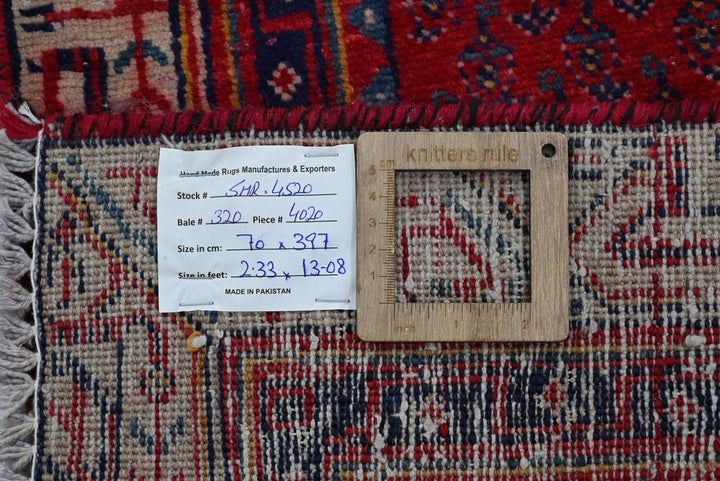 Hand Made Rugs Manufactures & Exporters
Stock # SHR.4520
Bale # 320 Piece # 4020
Size in cm: 70 x 397
Size in feet: 2.33 x 13-08
MADE IN PAKISTAN
knitters rule
cm
5
4
3
2
1
inch 1 2